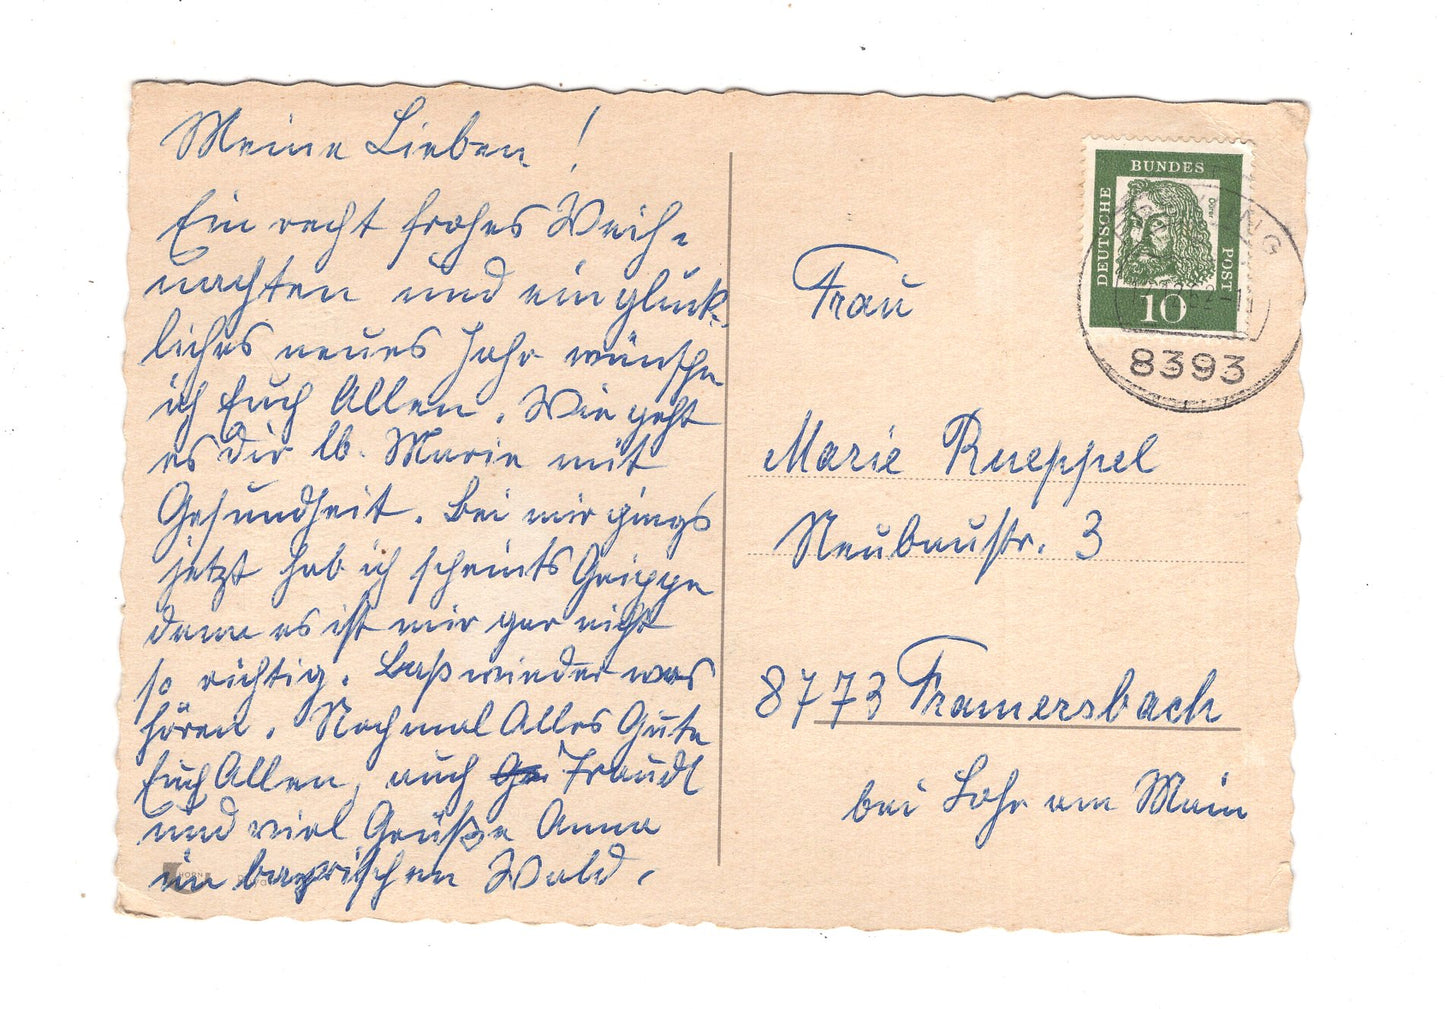 Meine Lieben!
Ein recht frohes Weih-
nachten und ein glück-
liches neues Jahr wünsche
ich Euch Allen. Wie geht
es Dir lb. Marie mit
Gesundheit. Bei mir gings
jetzt hab ich scheints Grippe
denn es ist mir gar nicht
so richtig. Laß wieder was
hören. Nochmal Alles Gute
Euch Allen, auch Traudl
und viel Grüße Anna
im bayrischen Wald.
DEUTSCHE
BUNDES
POST
Dürer
10
8393
Frau
Marie Rueppel
Neubaustr. 3
8773 Framersbach
bei Lohr am Main
HORN